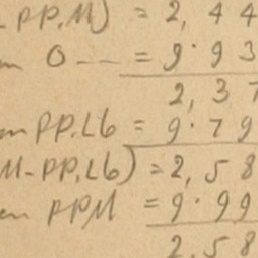 PP.M) = 2, 4 4
O -- = 9. 9 3
2, 3 7
PP.L6 = 9. 7 9
M-PP.L6) = 2, 5 8
PPM = 9. 9 9
2. 5 8